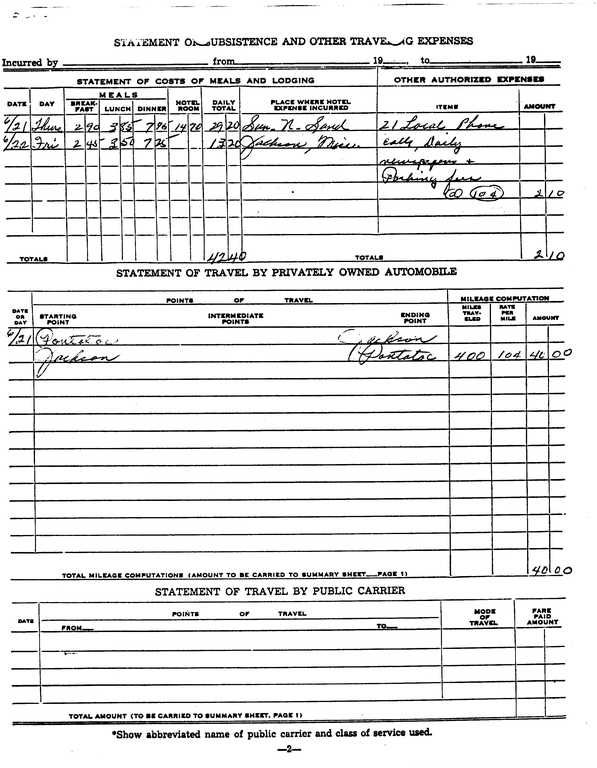 STATEMENT OF SUBSISTENCE AND OTHER TRAVELING EXPENSES
Incurred by from 19 , to 19
STATEMENT OF COSTS OF MEALS AND LODGING OTHER AUTHORIZED EXPENSES
DATE DAY MEALS BREAKFAST LUNCH DINNER HOTEL ROOM DAILY TOTAL PLACE WHERE HOTEL EXPENSE INCURRED ITEMS AMOUNT
6/21 Thurs 2 90 3 85 7 85 14 70 29 20 Sun-N-Sand 21 Local Phone
6/22 Fri 2 45 3 50 7 25 13 20 Jackson, Miss. calls, Daily
newspapers +
Parking fees
@ 10¢ 2 10
TOTALS 42 40 TOTALS 2 10
STATEMENT OF TRAVEL BY PRIVATELY OWNED AUTOMOBILE
POINTS OF TRAVEL MILEAGE COMPUTATION
DATE OR DAY STARTING POINT INTERMEDIATE POINTS ENDING POINT MILES TRAV-ELED RATE PER MILE AMOUNT
6/21 Pontotoc Jackson
Jackson Pontotoc 400 10¢ 40 00
TOTAL MILEAGE COMPUTATIONS (AMOUNT TO BE CARRIED TO SUMMARY SHEET—PAGE 1) 40 00
STATEMENT OF TRAVEL BY PUBLIC CARRIER
DATE POINTS OF TRAVEL MODE OF TRAVEL FARE PAID AMOUNT
FROM— TO—
TOTAL AMOUNT (TO BE CARRIED TO SUMMARY SHEET, PAGE 1)
*Show abbreviated name of public carrier and class of service used.
—2—